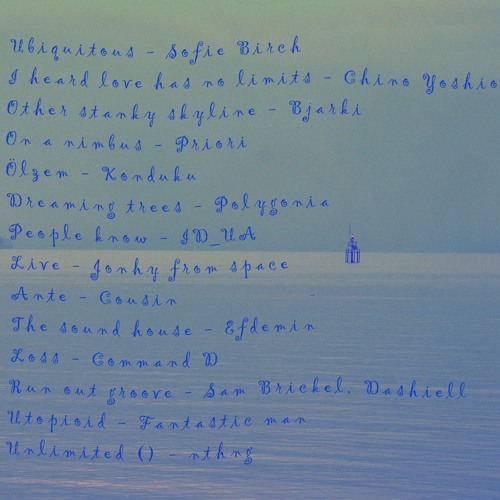 Ubiquitous - Sofie Birch
I heard love has no limits - Chino Yoshio
Other stanky skyline - Bjarki
On a nimbus - Priori
Ölzem - Konduku
Dreaming trees - Polygonia
People know - ID_UA
Live - Jonky from space
Ante - Cousin
The sound house - Efdemin
Loss - Command D
Run out groove - Sam Brickel, Dashiell
Utopioid - Fantastic man
Unlimited () - nthng